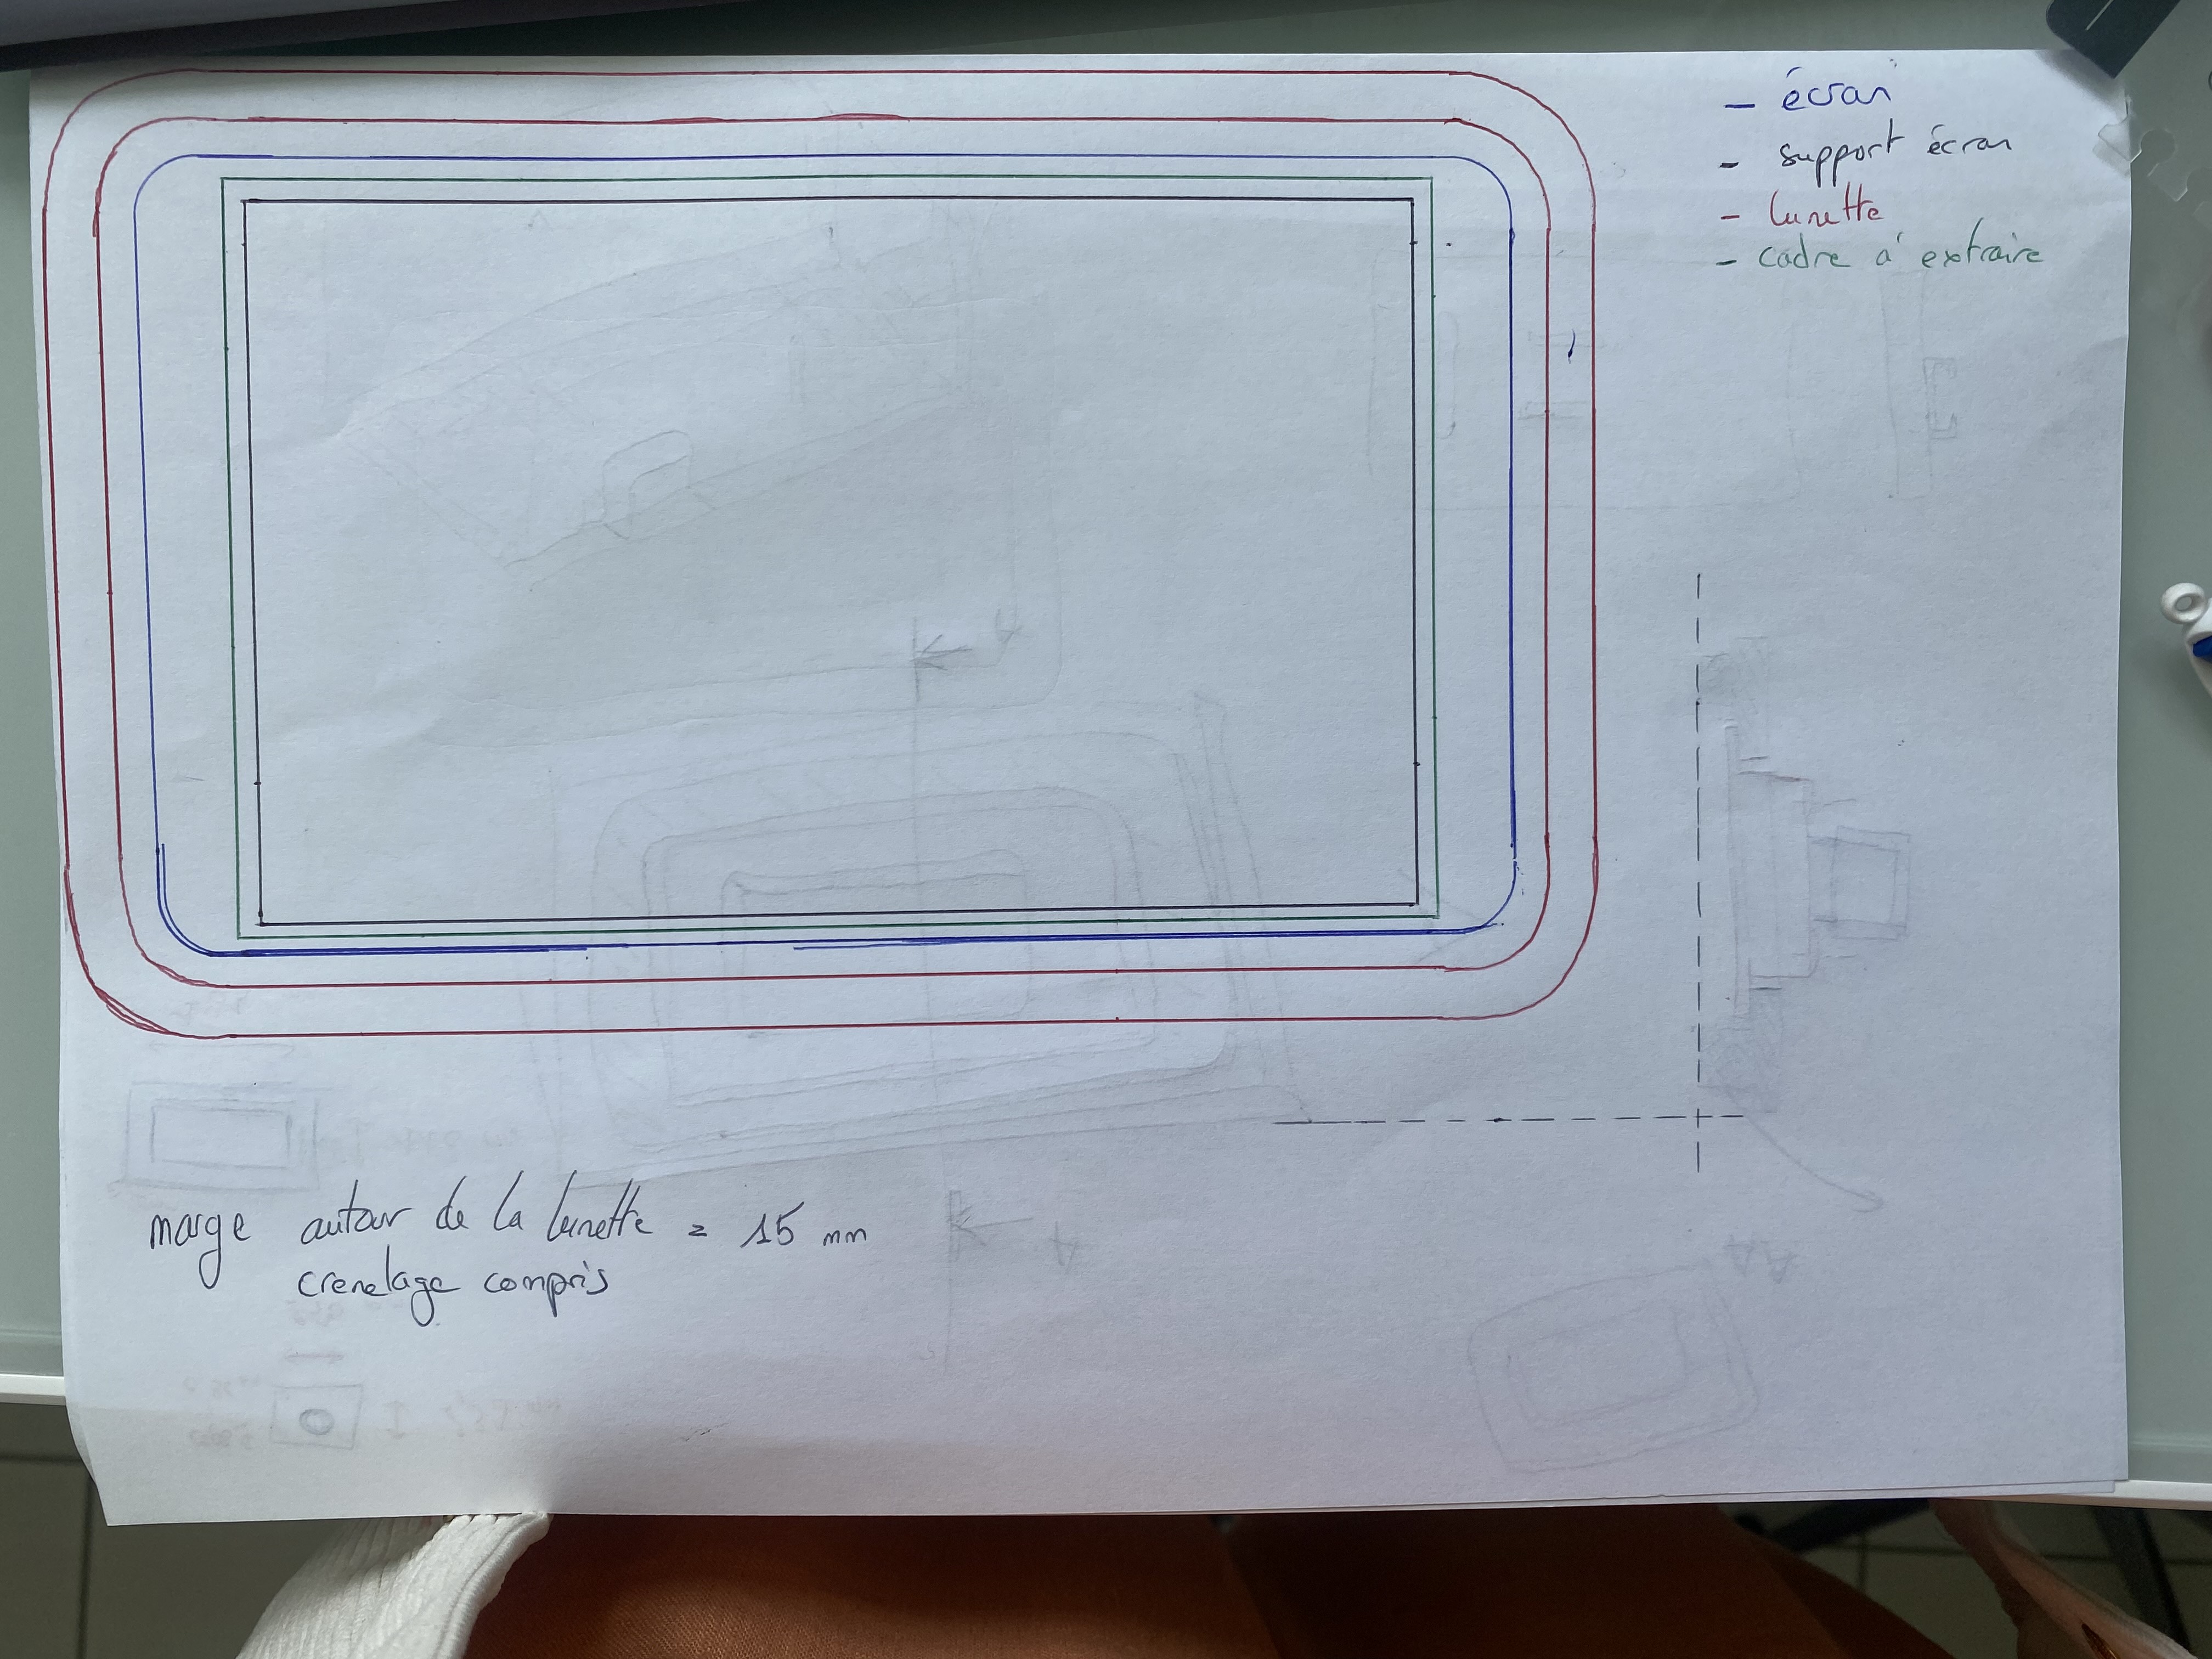 - écran
- support écran
- lunette
- cadre à extraire
marge autour de la lunette = 15 mm
crenelage compris